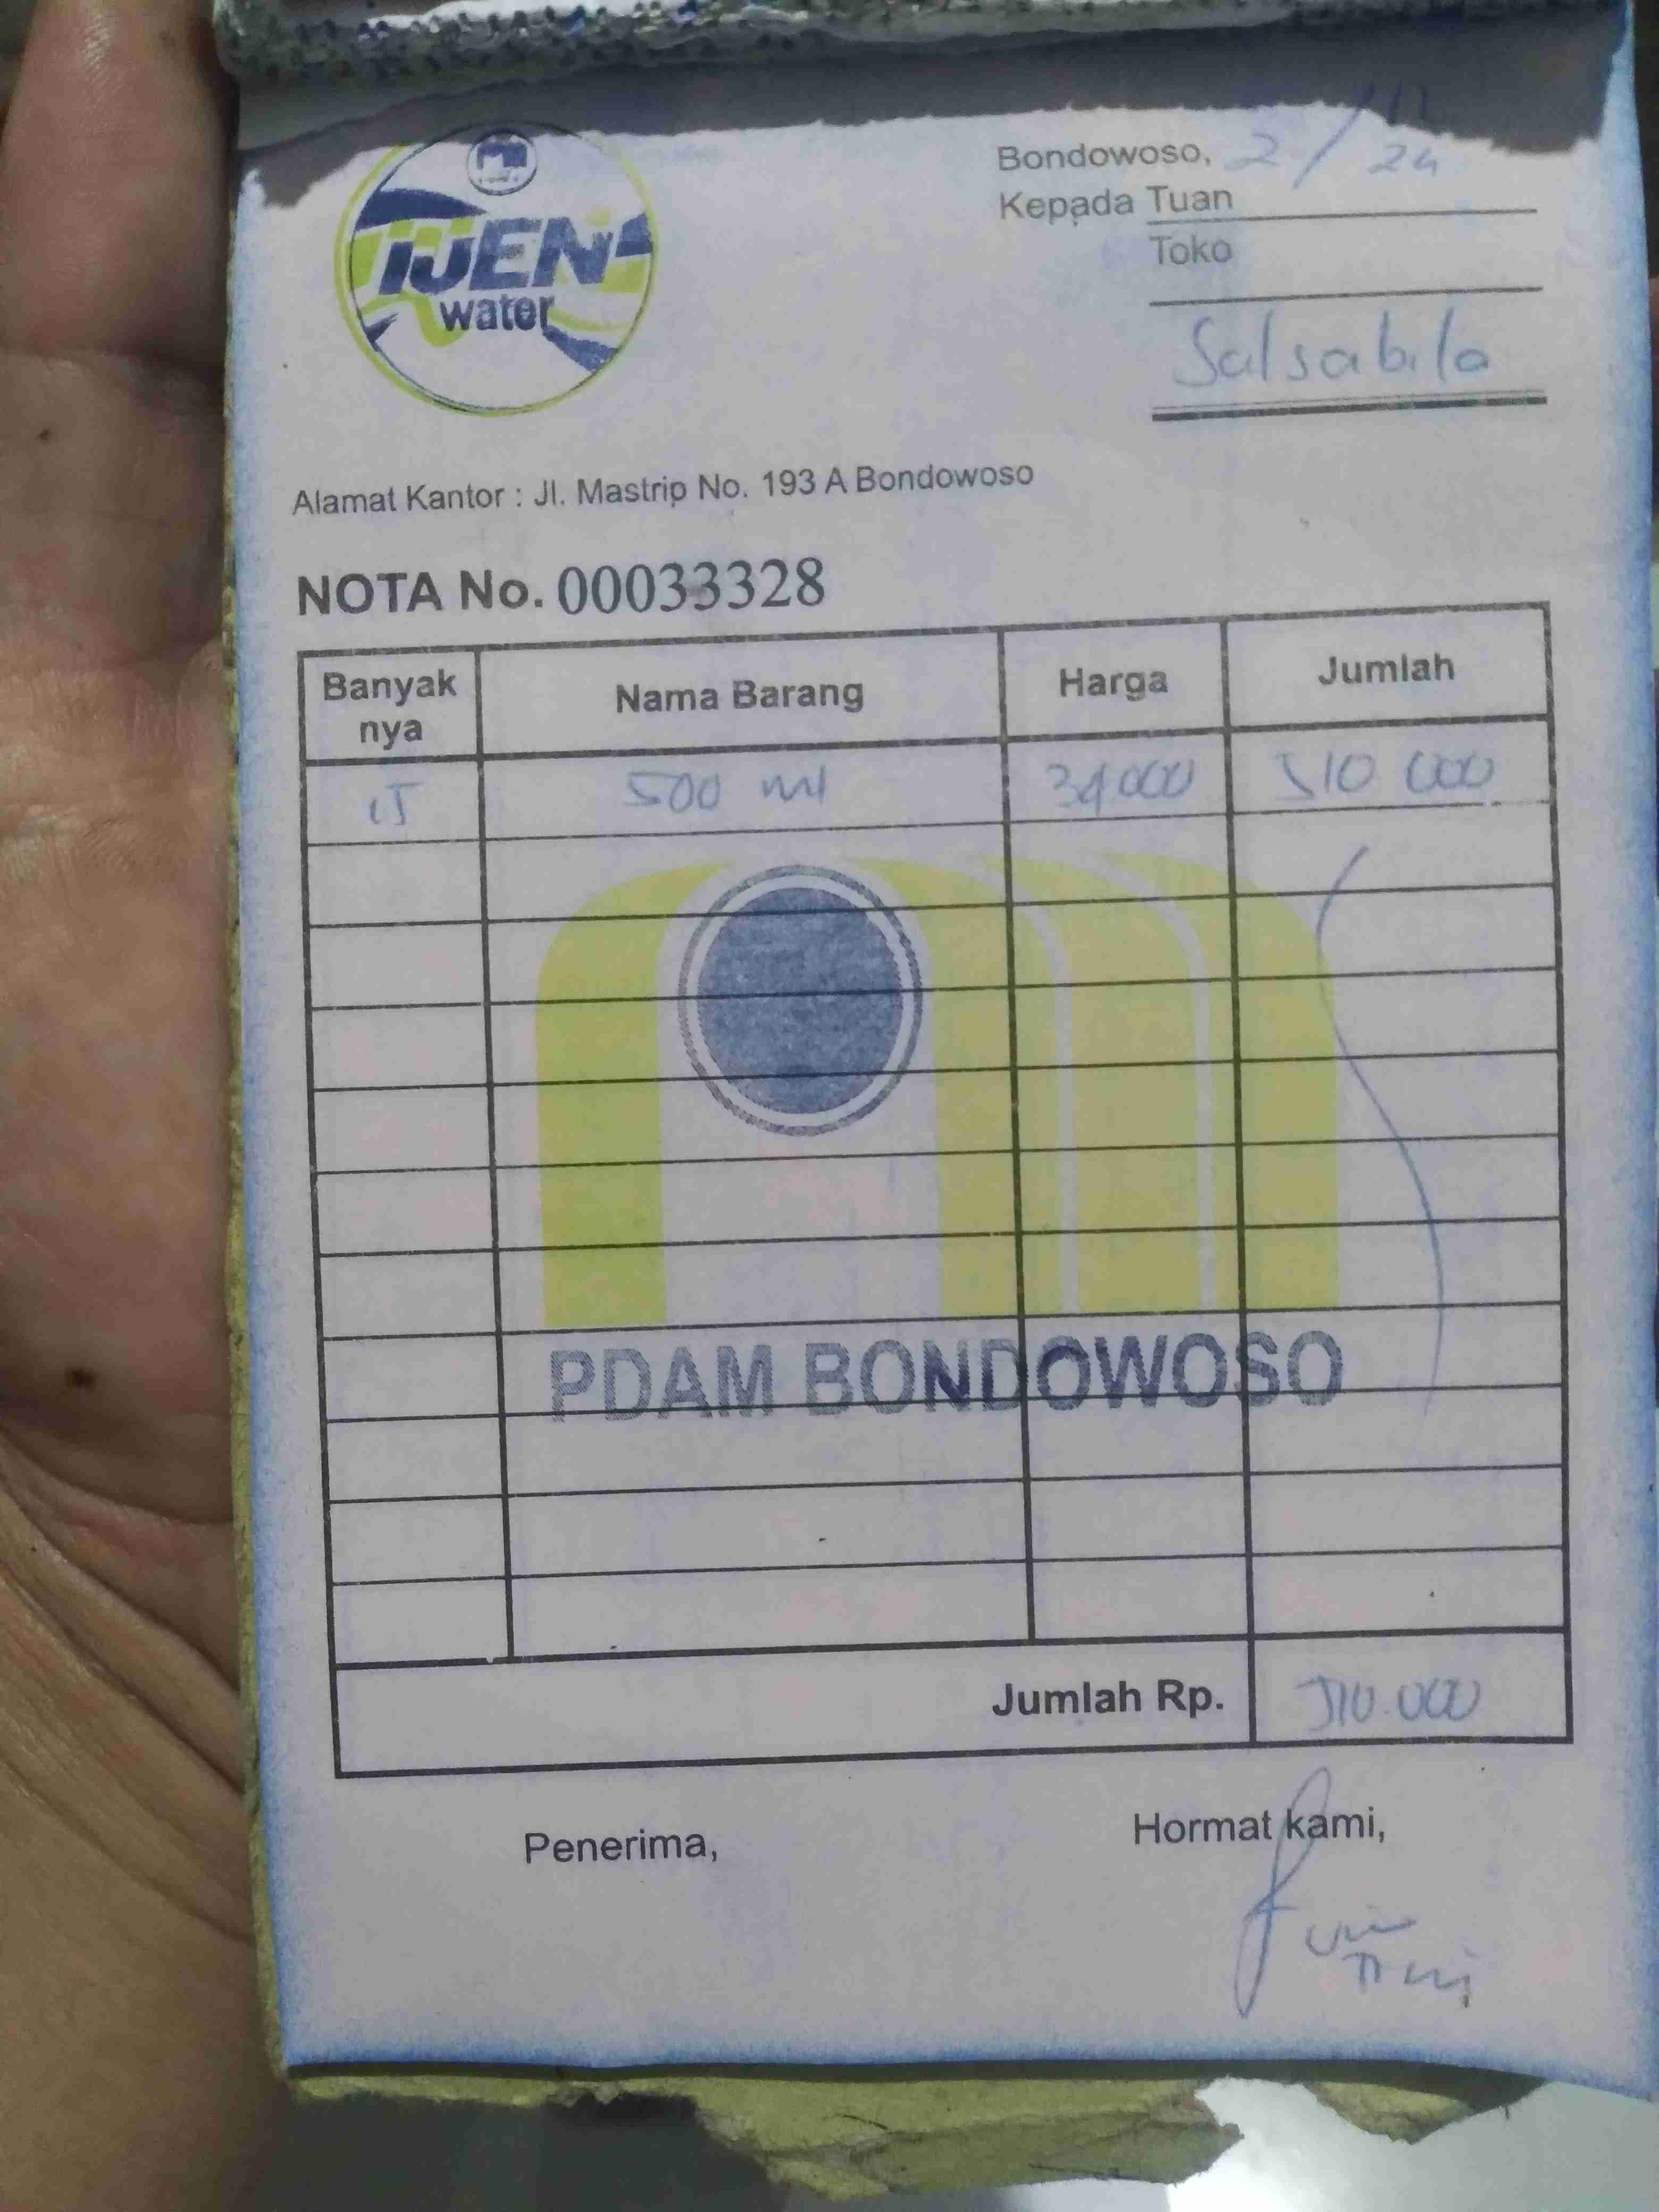 IJEN
water
Bondowoso, 2/12 24
Kepada Tuan
Toko
Salsabila
Alamat Kantor : Jl. Mastrip No. 193 A Bondowoso
NOTA No. 00033328
Banyak nya Nama Barang Harga Jumlah
15 500 ml 34.000 510 000
PDAM BONDOWOSO
Jumlah Rp. 510.000
Penerima, Hormat kami,